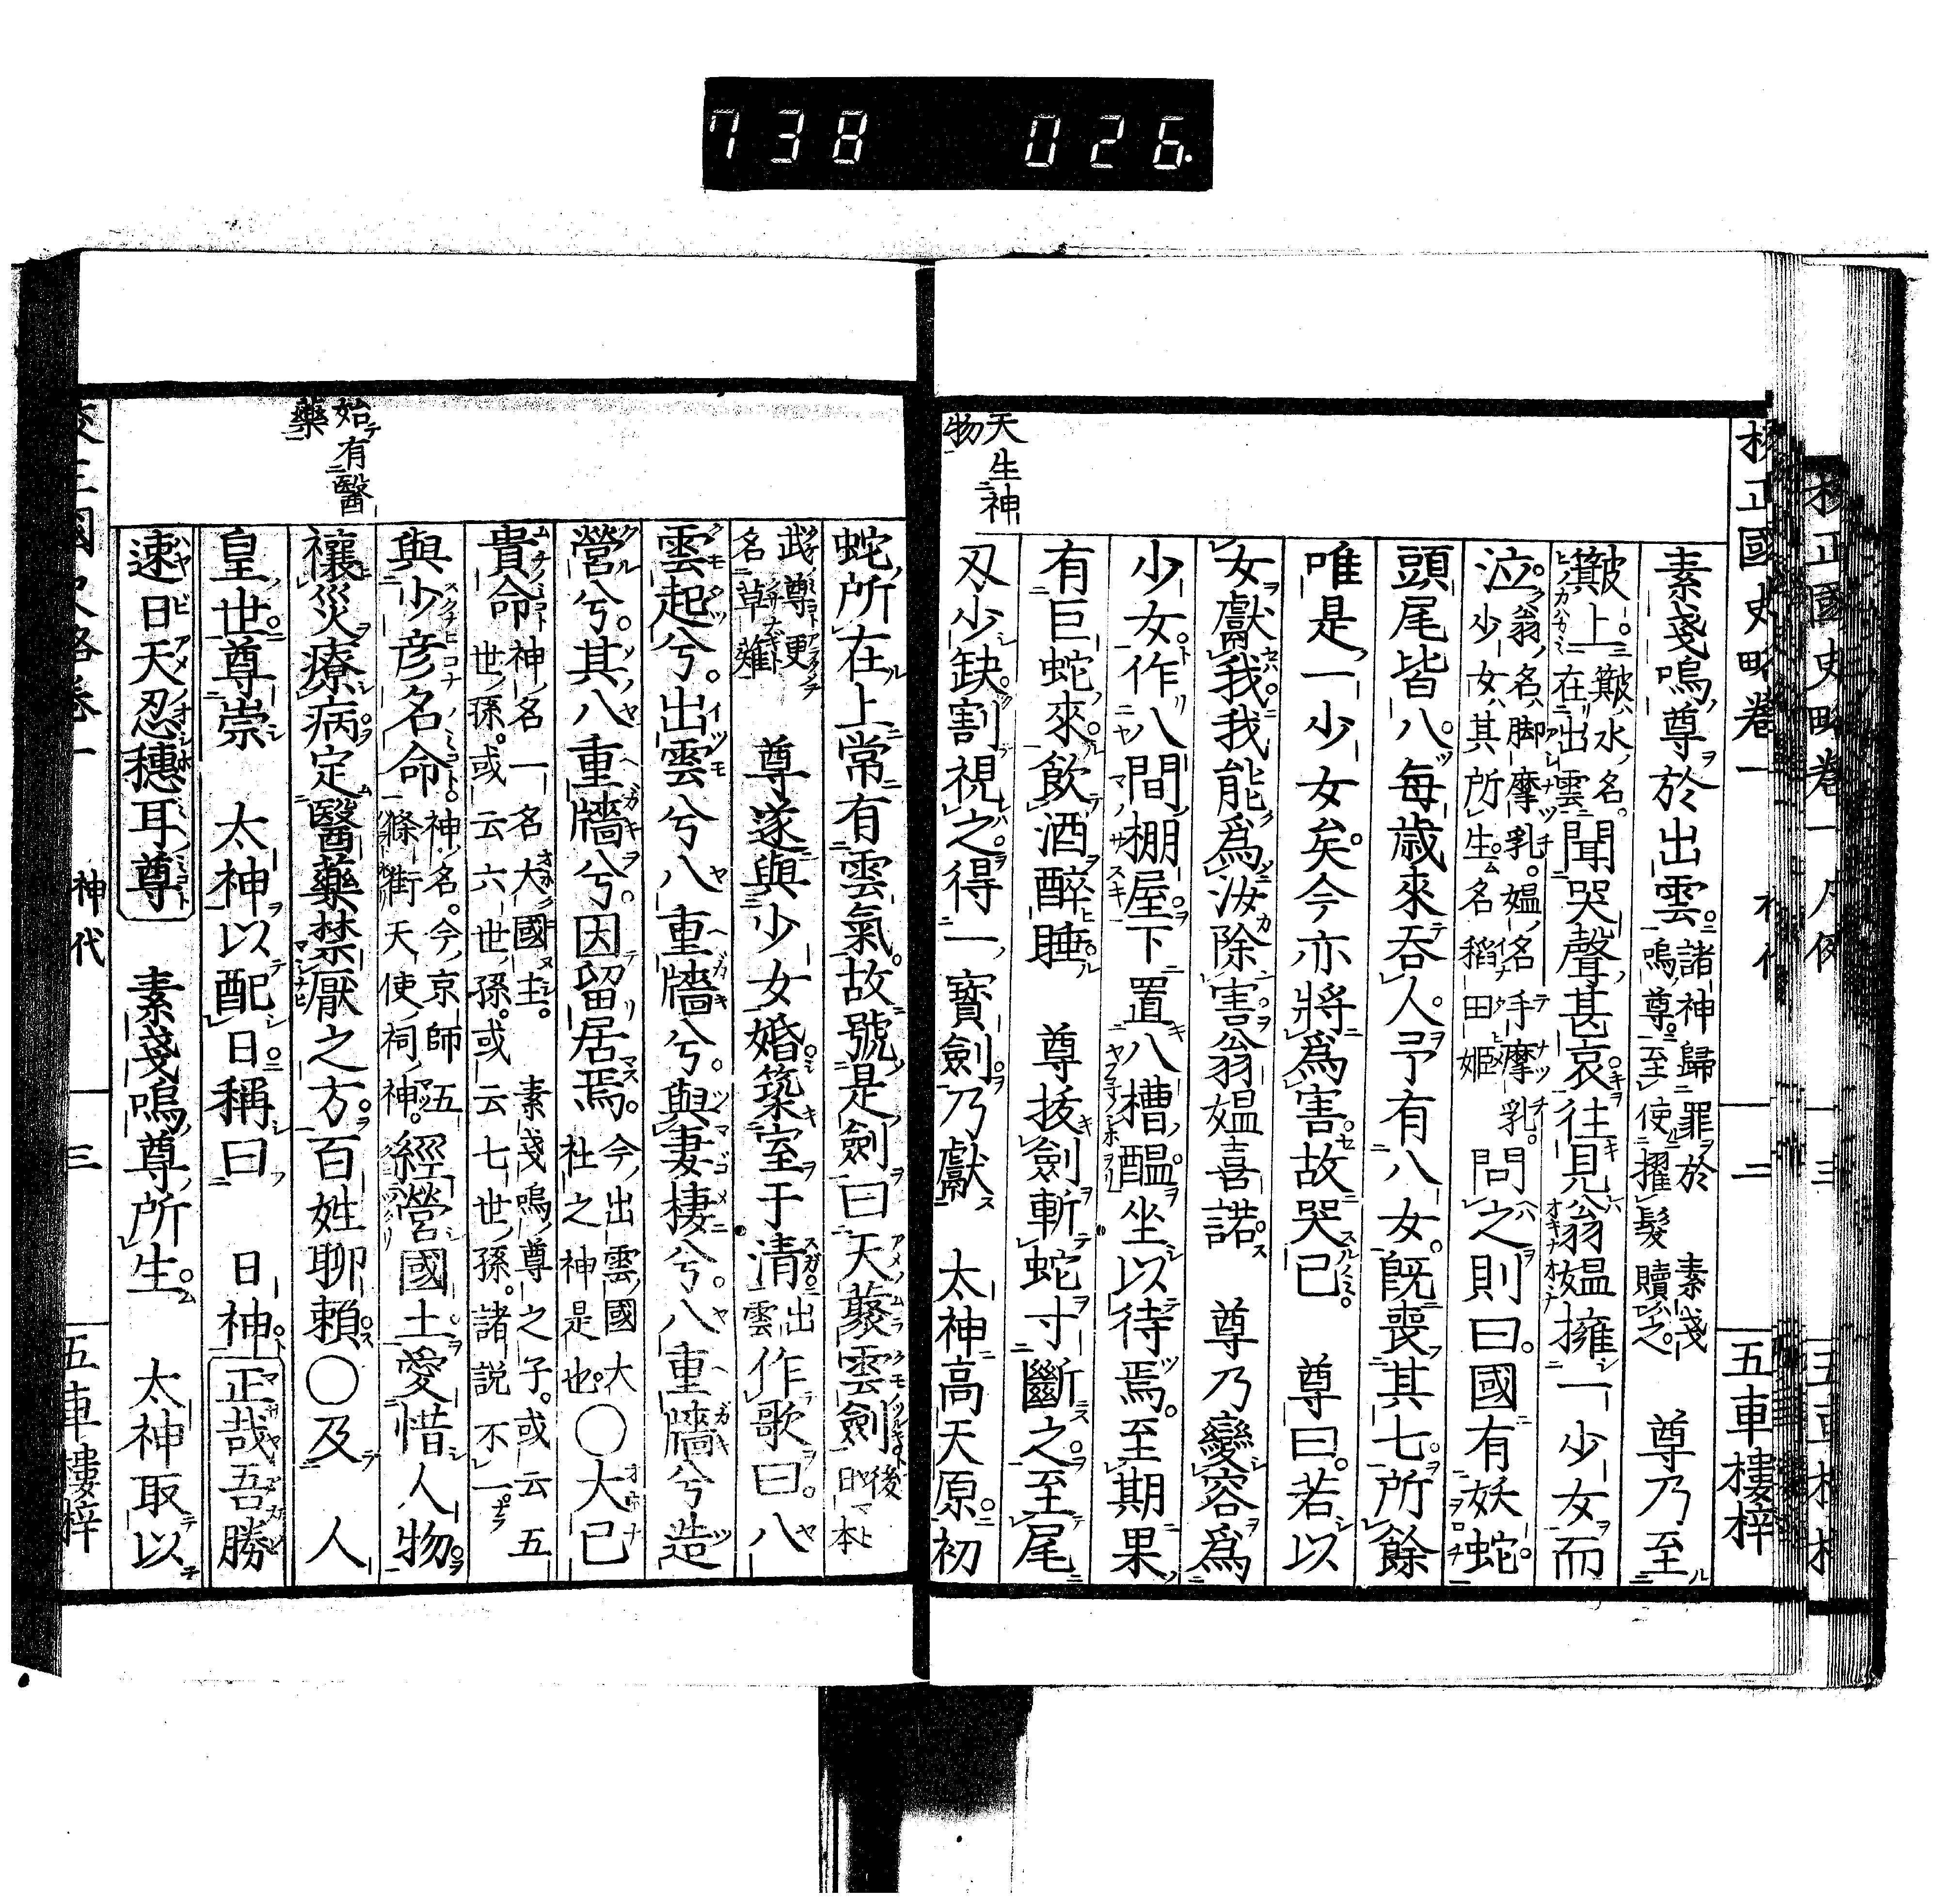 738 026.
校正國史略卷一 二 五車樓梓
天生神
物
素戔嗚尊於出雲諸神歸罪於素戔
嗚尊至使擢髮贖之。尊乃至
簸上簸水名。
在出雲聞哭聲甚哀往見翁媼擁一少女而
泣翁名脚摩乳。媼名手摩乳。
少女其所生名稻田姫問之則曰國有妖蛇
頭尾皆八每歳來吞人予有八女既喪其七所餘
唯是一少女矣今亦將爲害故哭已 尊曰若以
女獻我我能爲汝除害翁媼喜諾 尊乃變容爲
少女作八間棚屋下置八槽醞坐以待焉至期果
有巨蛇來飲酒醉睡 尊拔劍斬蛇寸斷之至尾
刃少缺割視之得一寶劍乃獻 太神高天原初
蛇所在上常有雲氣故號是劍曰天藂雲劍後日本
武尊更
名草薙 尊遂與少女婚築室于清出
雲作歌曰八
雲起兮出雲兮八重牆兮與妻棲兮八重牆兮造
營兮其八重牆兮因留居焉今出雲國大
社之神是也○大已
貴命神名一名大國主。素戔嗚尊之子。或云五
世孫。或云六世孫。或云七世孫。諸説不一
與少彦名命神名。今京師五
條街天使祠神。經營國土愛惜人物
禳災療病定醫藥禁厭之方百姓聊賴○及 人
皇世尊崇 太神以配日稱曰 日神正哉吾勝
速日天忍穗耳尊 素戔嗚尊所生 太神取以
始有醫
藥
神代 三 五車樓梓